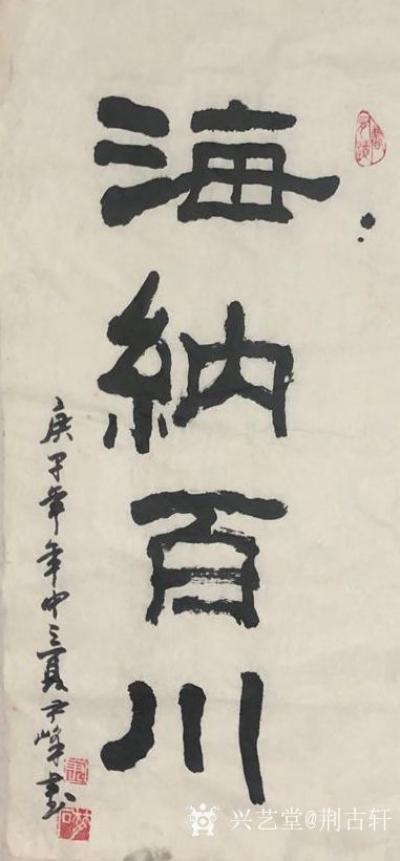 海納百川
庚子年年中之夏尹峰书
兴艺堂@荆古轩